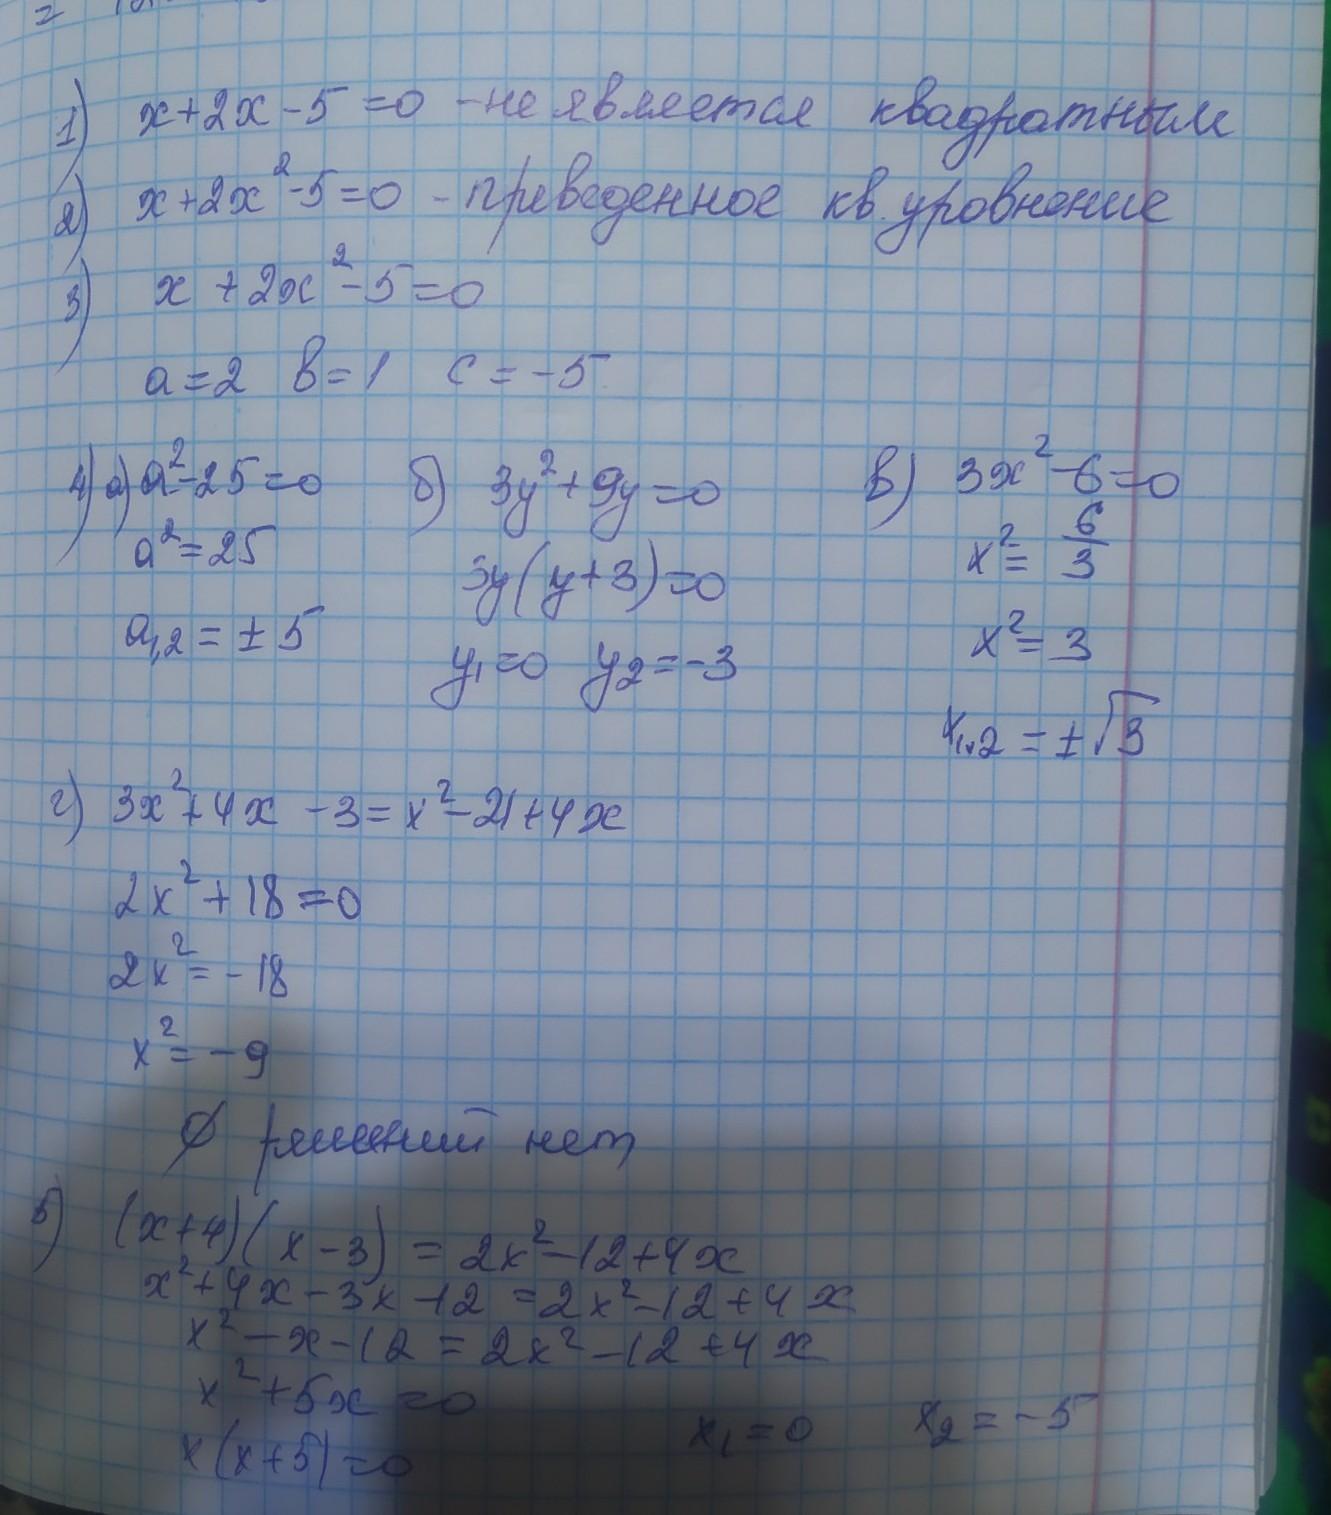 1) x+2x-5=0 - не является квадратным
2) x+2x²-5=0 - преведенное кв. уровнение
3) x+2x²-5=0
a=2 b=1 c=-5
4) а) a²-25=0 б) 3y²+9y=0 в) 3x²-6=0
a²=25 3y(y+3)=0 x²=6/3
a1,2=±5 y₁=0 y₂=-3 x²=3
x1,2=±√3
г) 3x²+4x-3=x²-21+4x
2x²+18=0
2x²=-18
x²=-9
∅ решений нет
5) (x+4)(x-3)=2x²-12+4x
x²+4x-3x-12=2x²-12+4x
x²-x-12=2x²-12+4x
x²+5x=0
x(x+5)=0 x₁=0 x₂=-5